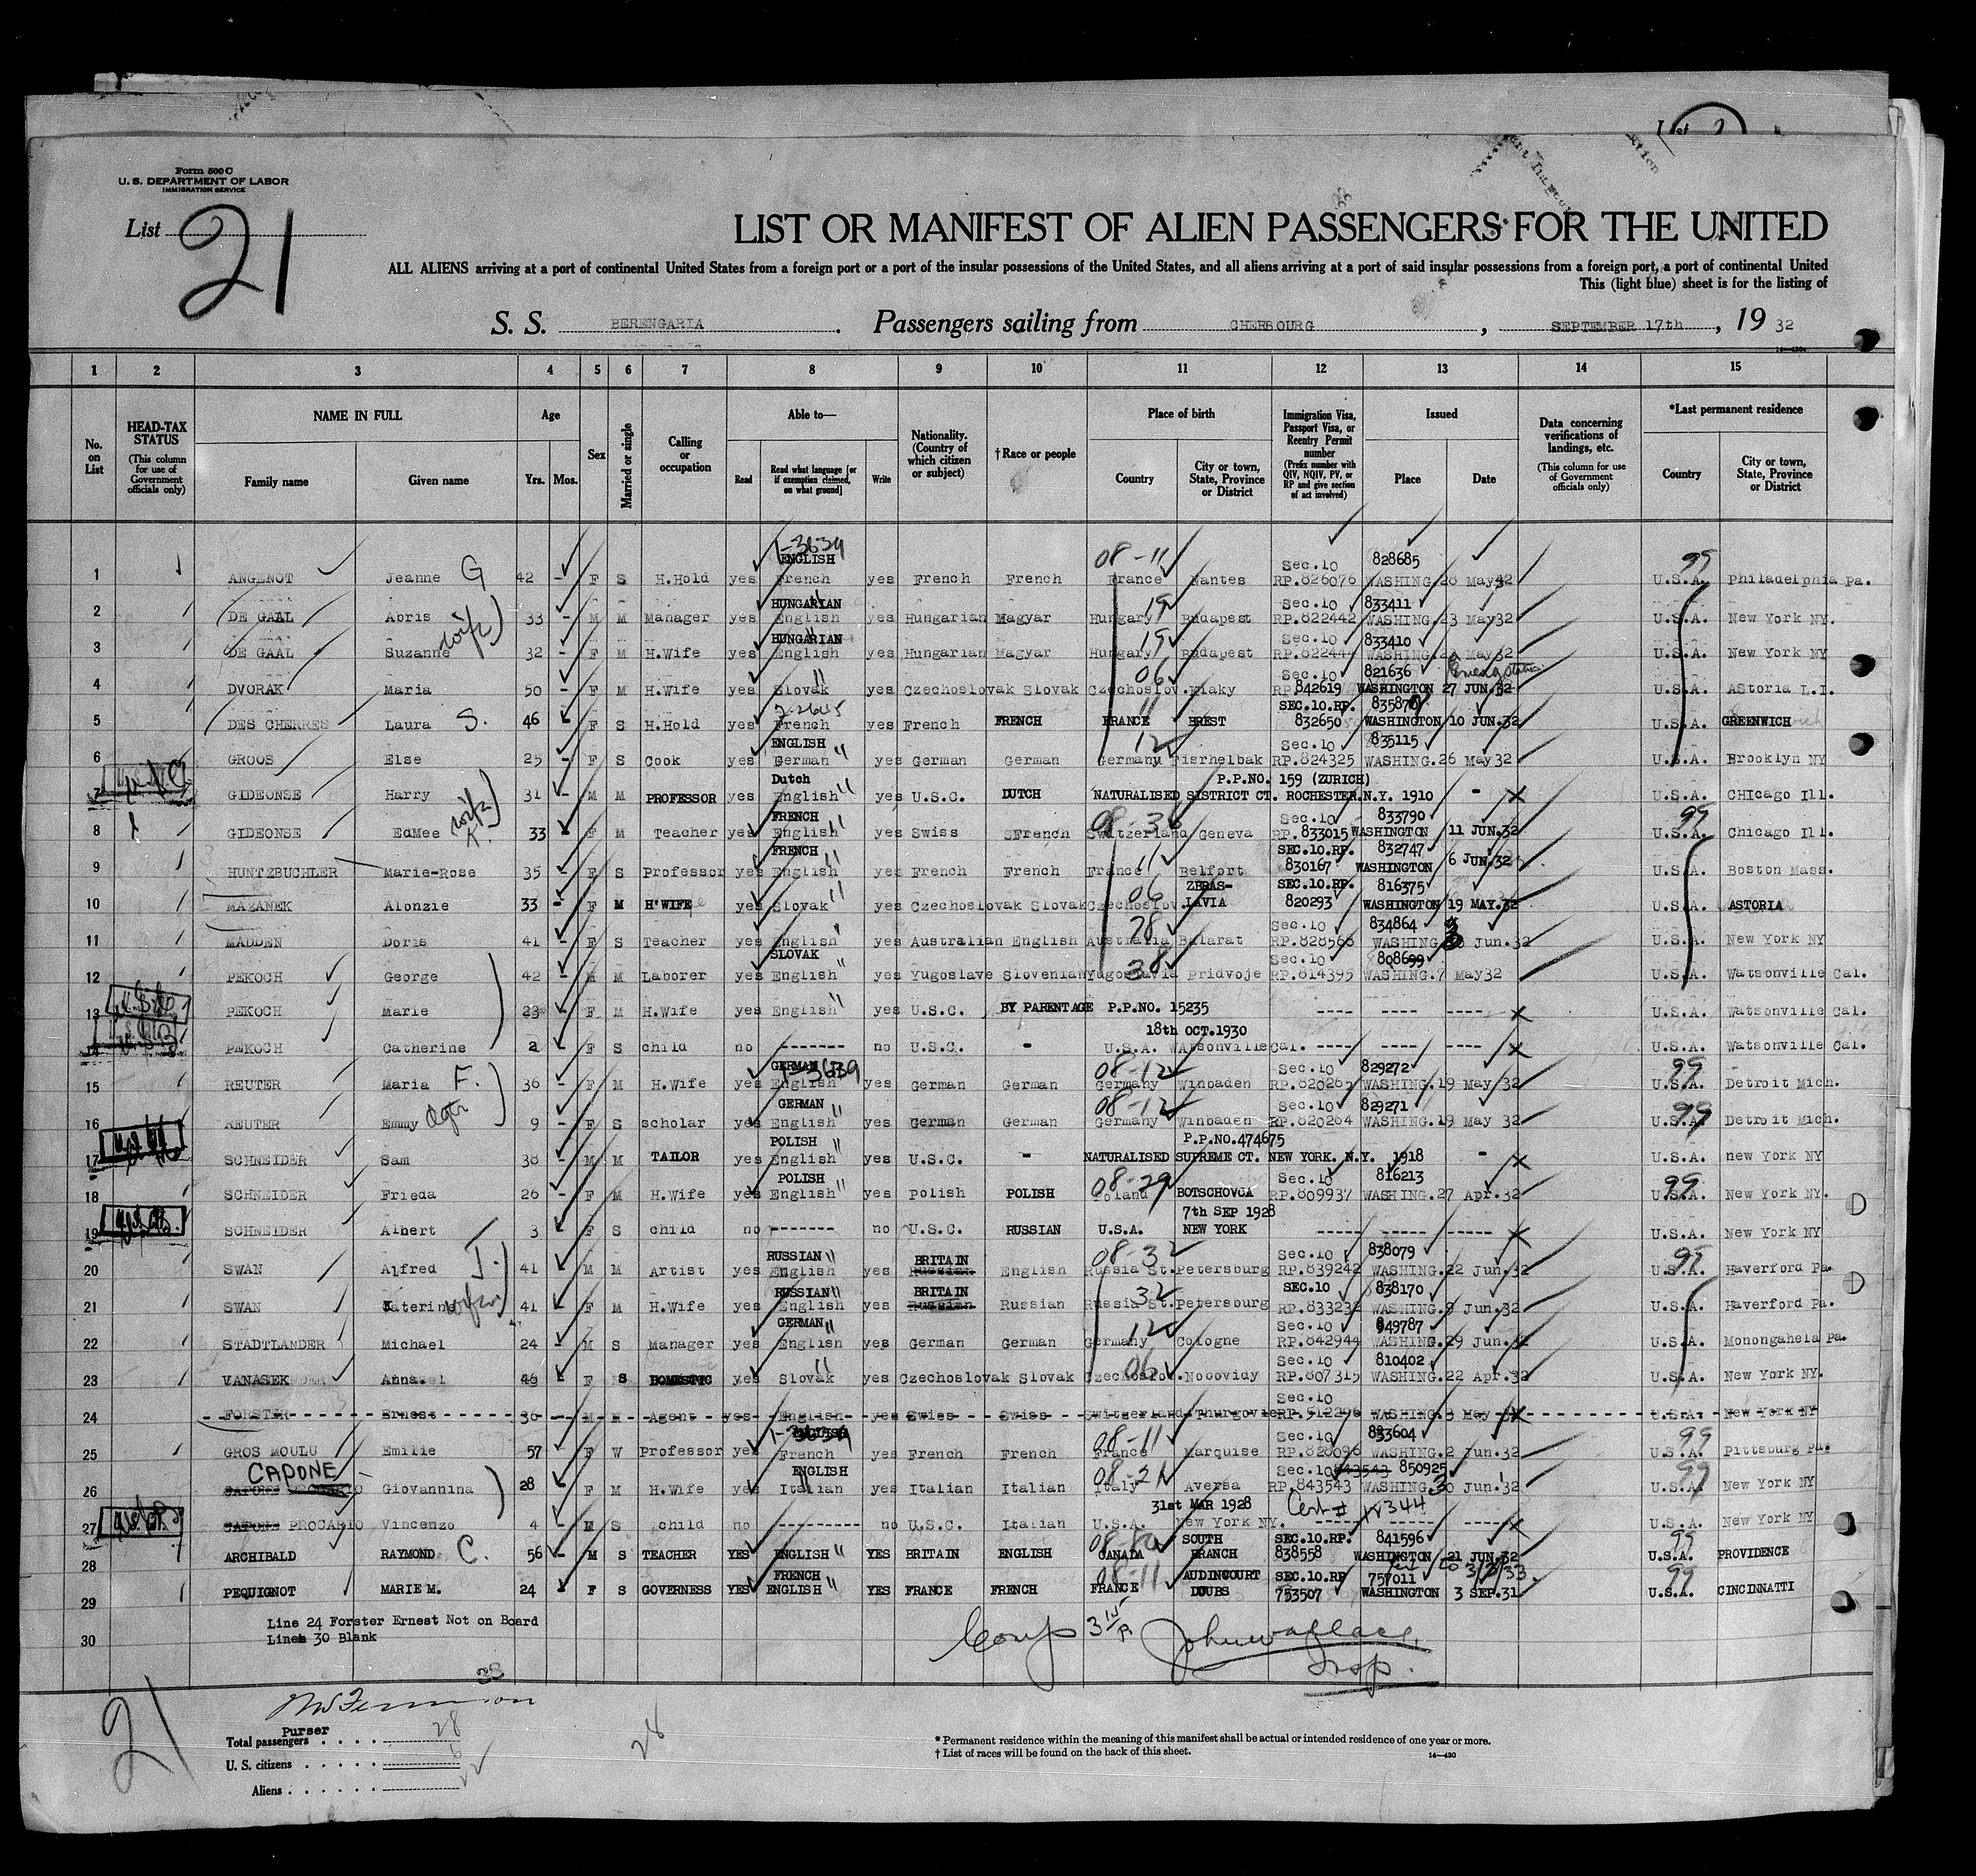 Form 500 C
U. S. DEPARTMENT OF LABOR
IMMIGRATION SERVICE
List 21
LIST OR MANIFEST OF ALIEN PASSENGERS FOR THE UNITED
ALL ALIENS arriving at a port of continental United States from a foreign port or a port of the insular possessions of the United States, and all aliens arriving at a port of said insular possessions from a foreign port, a port of continental United
This (light blue) sheet is for the listing of
S. S. BERENGARIA. Passengers sailing from CHERBOURG, SEPTEMBER 17th, 19 32
1 2 3 4 5 6 7 8 9 10 11 12 13 14 15
No. on List
HEAD-TAX STATUS (This column for use of Government officials only)
NAME IN FULL Family name Given name
Age Yrs. Mos.
Sex
Married or single
Calling or occupation
Able to— Read Read what language [or if exemption claimed, on what ground] Write
Nationality. (Country of which citizen or subject)
†Race or people
Place of birth Country City or town, State, Province or District
Immigration Visa, Passport Visa, or Reentry Permit number (Prefix number with QIV, NQIV, PV, or RP and give section of act involved)
Issued Place Date
Data concerning verifications of landings, etc. (This column for use of Government officials only)
*Last permanent residence Country City or town, State, Province or District
1-3634 ENGLISH 08-11 Sec.10 828685 99
1 ANGENOT Jeanne G 42 - F S H.Hold yes French yes French French France Nantes RP.826076 WASHING.28 May32 U.S.A. Philadelphia Pa.
HUNGARIAN 19 Sec.10 833411
2 DE GAAL Abris 33 - M M Manager yes English yes Hungarian Magyar Hungary Budapest RP.822442 WASHING.23 May32 U.S.A. New York NY.
HUNGARIAN 19 Sec.10 833410
3 DE GAAL Suzanne wife 32 - F M H.Wife yes English yes Hungarian Magyar Hungary Budapest RP.822444 WASHING. May32 U.S.A. New York NY
06 Sec.10 821636
4 DVORAK Maria 50 - F M H.Wife yes Slovak yes Czechoslovak Slovak Czechoslov. RP.842619 WASHINGTON 27 JUN.32 U.S.A. Astoria L.I.
2-2645 11 SEC.10.RP. 835878
5 DES CHERRES Laura S. 46 F S H.Hold yes French yes French FRENCH FRANCE BREST 832650 WASHINGTON 10 JUN.32 U.S.A. GREENWICH
ENGLISH 12 Sec.10 835115
6 GROOS Else 25 - F S Cook yes German yes German German Germany Fisrhelbak RP.824325 WASHING.26 May32 U.S.A. Brooklyn NY
Dutch P.P.NO. 159 (ZURICH)
7 GIDEONSE Harry 31 - M M PROFESSOR yes English yes U.S.C. DUTCH NATURALISED SISTRICT CT. ROCHESTER.N.Y. 1910 - X U.S.A. CHIcago Ill.
FRENCH 08-36 Sec.10 833790 99
8 GIDEONSE EdMee wife 33 - F M Teacher yes English yes Swiss SFrench Switzerland Geneva RP.833015 WASHINGTON 11 JUN.32 U.S.A. Chicago Ill.
FRENCH 11 SEC.10.RP. 832747
9 HUNTZBUCHLER Marie-Rose 35 - F S Professor yes English yes French French France Belfort 830167 WASHINGTON 6 JUN.32 U.S.A. Boston Mass.
06 ZBRAS- SEC.10.RP. 816375
10 MAZANEK Alonzie 33 - F M H'WIFE yes Slovak yes Czechoslovak Slovak Czechoslov. LAVIA 820293 WASHINGTON 19 MAY.32 U.S.A. ASTORIA
28 Sec.10 834864
11 MADDEN Doris 41 - F S Teacher yes English yes Australian English Australia Balarat RP.828568 WASHING. Jun.32 U.S.A. New York NY
SLOVAK 38 Sec.10 808699
12 PEKOCH George 42 - M M Laborer yes English yes Yugoslave Slovenian Yugoslavia Pridvoje RP.814395 WASHING.7 May32 U.S.A. Watsonville Cal.
13 PEKOCH Marie 23 - F M H.Wife yes English yes U.S.C. BY PARENTAGE P.P.NO. 15235 ---- ---- ---- X U.S.A. Watsonville Cal.
18th OCT.1930
14 PEKOCH Catherine 2 F S child no ------- no U.S.C. - U.S.A. Watsonville Cal. ---- ---- ---- X U.S.A. Watsonville Cal.
GERMAN 1-3639 08-12 Sec.10 829272 99
15 REUTER Maria F. 36 - F M H.Wife yes English yes German German Germany Winbaden RP.820265 WASHING.19 May 32 U.S.A. Detroit Mich.
GERMAN 08-12 Sec.10 829271 99
16 REUTER Emmy dgtr 9 - F S scholar yes English yes German German Germany Winbaden RP.820264 WASHING.19 May 32 U.S.A. Detroit Mich.
POLISH P.P.NO.474675
17 SCHNEIDER Sam 38 - M M TAILOR yes English yes U.S.C. - NATURALISED SUPREME CT. NEW YORK. N.Y. 1918 - X U.S.A. new York NY
POLISH 08-29 Sec.10 816213 99
18 SCHNEIDER Frieda 26 - F M H.Wife yes English yes Polish POLISH Poland BOTSCHOVCA RP.809937 WASHING.27 Apr.32 U.S.A. New York NY.
7th SEP 1928
19 SCHNEIDER Albert 3 F S child no ------- no U.S.C. RUSSIAN U.S.A. NEW YORK ----- ----- ---- X U.S.A. New York NY
RUSSIAN BRITAIN 08-32 Sec.10 838079 99
20 SWAN Alfred J. 41 M M Artist yes English yes Russian English Russia St.Petersburg RP.839242 WASHING.22 Jun.32 U.S.A. Haverford Pa.
RUSSIAN BRITAIN 32 SEC.10 838170
21 SWAN Katerina wife 41 - F M H.Wife yes English yes Russian Russian Russia St.Petersburg RP.833232 WASHING.9 Jun.32 U.S.A. Haverford Pa.
GERMAN 12 Sec.10 849787
22 STADTLANDER Michael 24 - M S Manager yes English yes German German Germany Cologne RP.842944 WASHING.29 Jun.32 U.S.A. Monongahela Pa.
06 Sec.10 810402
23 VANASEK Anna 49 - F S DOMESTIC yes Slovak yes Czechoslovak Slovak Czechoslov. Nooovidy RP.807315 WASHING.22 Apr.32 U.S.A. New York NY.
Sec.10
24 FORSTER Ernest 36 - M M Agent yes English yes Swiss Swiss Switzerland Thurgovie RP.512296 WASHING.3 May 32 X U.S.A. New York NY
1-3634 ENGLISH 08-11 Sec.10 833604 99
25 GROS MOULU Emilie 57 - F W Professor yes French yes French French France Marquise RP.828096 WASHING.2 Jun.32 U.S.A. Pittsburg Pa.
CAPONE ENGLISH 08-21 Sec.10 843543 850925 99
26 CAPONE PROCARIO Giovannina 28 F M H.Wife yes Italian yes Italian Italian Italy Aversa RP.843543 WASHING.30 Jun.32 U.S.A. New York NY
31st MAR 1928 Cert # 12344
27 CAPONE PROCARIO Vincenzo 4 - M S child no ---------- no U.S.C. Italian U.S.A. New York NY. X U.S.A. New York NY
SOUTH SEC.10.RP. 841596 99
28 ARCHIBALD RAYMOND C. 56 - M S TEACHER YES ENGLISH YES BRITAIN ENGLISH CANADA BRANCH 838558 WASHINGTON 21 JUN.32 U.S.A. PROVIDENCE
FRENCH 08-11 AUDINCOURT SEC.10.RP 757011 to 3/3/33. 99
29 PEQUIGNOT MARIE M. 24 - F S GOVERNESS YES ENGLISH YES FRANCE FRENCH FRANCE DOUBS 753507 WASHINGTON 3 SEP.31 U.S.A. CINCINNATTI
Line 24 Forster Ernest Not on Board
30 Line 30 Blank
John Wallace
Insp.
21
Purser
Total passengers . . . . 28
U. S. citizens . . . . . 6
Aliens . . . . . . 22
28
* Permanent residence within the meaning of this manifest shall be actual or intended residence of one year or more.
† List of races will be found on the back of this sheet.
14—430